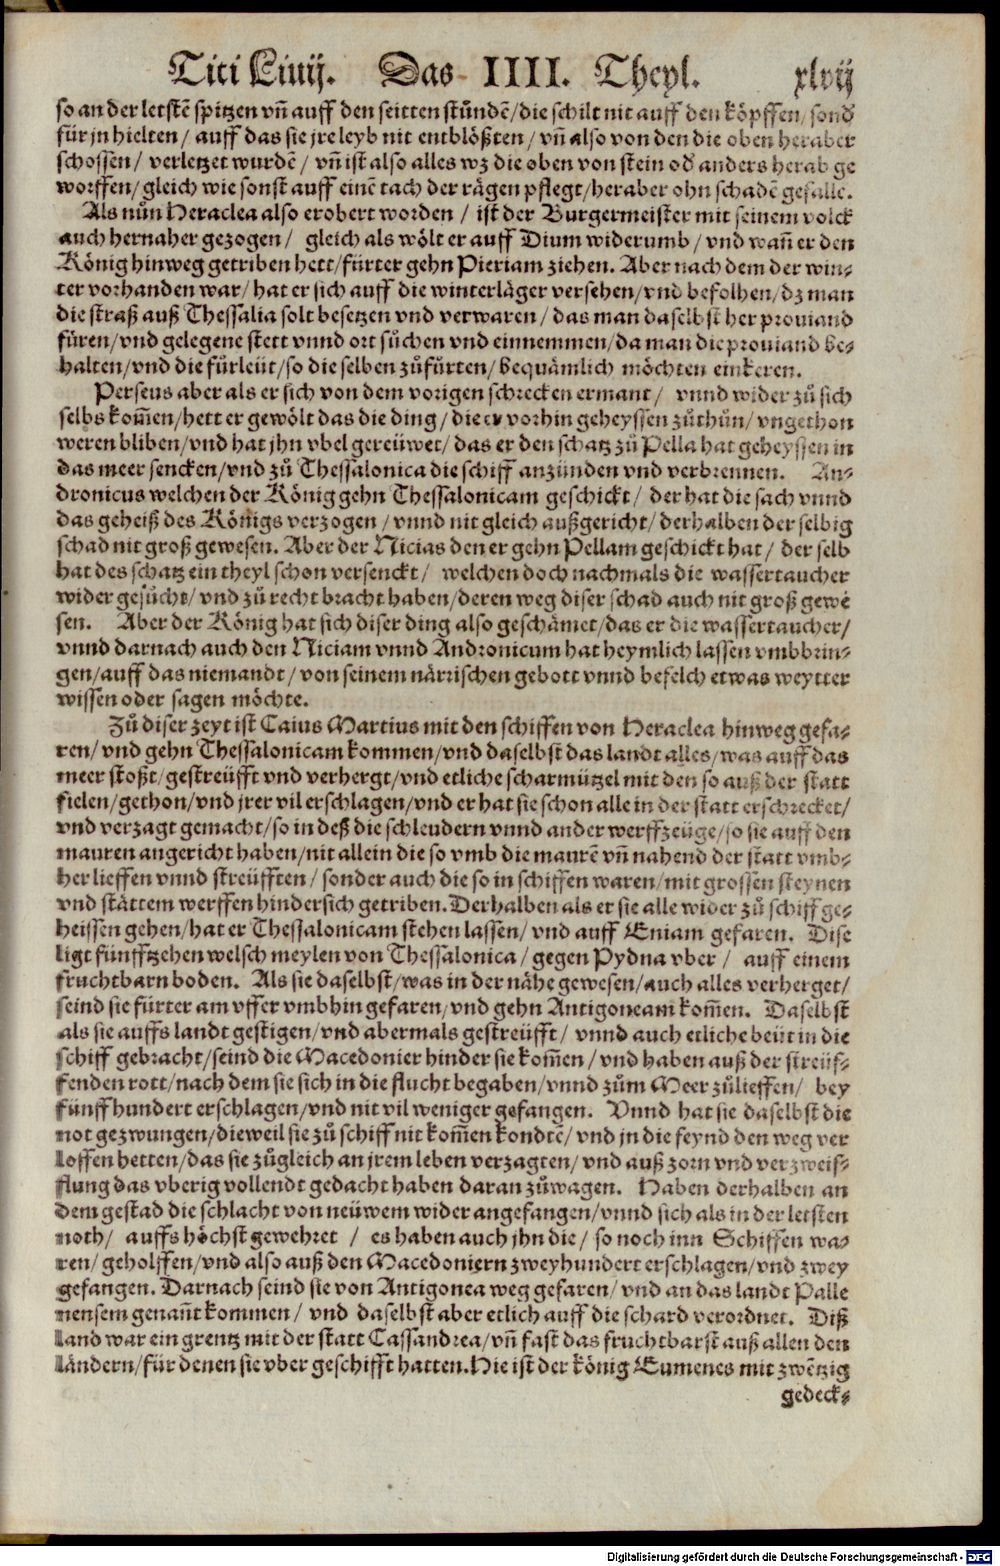 Titi Liuij. Das IIII. Theyl. xlvij
so an der letstē spitzen vñ auff den seitten stůndē/die schilt nit auff den köpffen/ sond
für jn hielten/ auff das sie jre leyb nit entblößten/ vñ also von den die oben heraber
schossen/ verletzet wurdē/ vñ ist also alles wz die oben von stein od anders herab ge
worffen/gleich wie sonst auff einē tach der rägen pflegt/heraber ohn schadē gefalle.
Als nůn Heraclea also erobert worden/ ist der Burgermeister mit seinem volck
auch hernaher gezogen/ gleich als wölt er auff Dium widerumb/ vnd wañ er den
König hinweg getriben hett/fürter gehn Pieriam ziehen. Aber nach dem der win⸗
ter vorhanden war/ hat er sich auff die winterläger versehen/vnd befolhen/dz man
die straß auß Thessalia solt besetzen vnd verwaren/ das man daselbst her prouiand
füren/vnd gelegene stett vnnd ort sůchen vnd einnemmen/da man die prouiand be⸗
halten/vnd die fürleüt/so die selben zůfürten/ bequämlich möchten einkeren.
Perseus aber als er sich von dem vorigen schrecken ermant/ vnnd wider zů sich
selbs kom̃en/hett er gewölt das die ding/die er vorhin geheyssen zůthůn/vngethon
weren bliben/vnd hat jhn vbel gereüwet/ das er den schatz zů Pella hat geheyssen in
das meer sencken/vnd zů Thessalonica die schiff anzünden vnd verbrennen. An⸗
dronicus welchen der König gehn Thessalonicam geschickt/ der hat die sach vnnd
das geheiß des Königs verzogen/vnnd nit gleich außgericht/derhalben der selbig
schad nit groß gewesen. Aber der Nicias den er gehn Pellam geschickt hat/ der selb
hat des schatz ein theyl schon versenckt/ welchen doch nachmals die wassertaucher
wider gesůcht/vnd zů recht bracht haben/deren weg diser schad auch nit groß gewē
sen. Aber der König hat sich diser ding also geschämet/das er die wassertaucher/
vnnd darnach auch den Niciam vnnd Andronicum hat heymlich lassen vmbbrin⸗
gen/auff das niemandt/von seinem närrischen gebott vnnd befelch etwas weytter
wissen oder sagen möchte.
Zů diser zeyt ist Caius Martius mit den schiffen von Heraclea hinweg gefa⸗
ren/vnd gehn Thessalonicam kommen/vnd daselbst das landt alles/was auff das
meer stoßt/gestreüfft vnd verhergt/vnd etliche scharmützel mit den so auß der statt
fielen/gethon/vnd jrer vil erschlagen/vnd er hat sie schon alle in der statt erschrecket/
vnd verzagt gemacht/so in deß die schleudern vnnd ander werffzeüge/so sie auff den
mauren angericht haben/nit allein die so vmb die maurē vñ nahend der statt vmb⸗
her lieffen vnnd streüfften/ sonder auch die so in schiffen waren/mit grossen steynen
vnd stättem werffen hindersich getriben. Derhalben als er sie alle wider zů schiff ge⸗
heissen gehen/hat er Thessalonicam stehen lassen/ vnd auff Eniam gefaren. Dise
ligt fünfftzehen welsch meylen von Thessalonica/gegen Pydna vber/ auff einem
fruchtbarn boden. Als sie daselbst/was in der nähe gewesen/auch alles verherget/
seind sie fürter am vffer vmbhin gefaren/vnd gehn Antigoneam kom̃en. Daselbst
als sie auffs landt gestigen/vnd abermals gestreüfft/ vnnd auch etliche beüt in die
schiff gebracht/seind die Macedonier hinder sie kom̃en/vnd haben auß der streüf⸗
fenden rott/nach dem sie sich in die flucht begaben/vnnd zům Meer zůlieffen/ bey
fünff hundert erschlagen/vnd nit vil weniger gefangen. Vnnd hat sie daselbst die
not gezwungen/dieweil sie zů schiff nit kom̃en kondtē/vnd jn die feynd den weg ver
loffen hetten/das sie zůgleich an jrem leben verzagten/vnd auß zorn vnd verzweif⸗
flung das vberig vollendt gedacht haben daran zůwagen. Haben derhalben an
dem gestad die schlacht von neüwem wider angefangen/vnnd sich als in der letsten
noth/ auffs höchst gewehret / es haben auch jhn die/ so noch inn Schiffen wa⸗
ren/geholffen/vnd also auß den Macedoniern zweyhundert erschlagen/vnd zwey
gefangen. Darnach seind sie von Antigonea weg gefaren/vnd an das landt Palle
nensem genañt kommen/ vnd daselbst aber etlich auff die schard verordnet. Diß
land war ein grentz mit der statt Cassandrea/vñ fast das fruchtbarst auß allen den
ländern/für denen sie vber geschifft hatten. Hie ist der könig Eumenes mit zwētzig
gedeck⸗
Digitalisierung gefördert durch die Deutsche Forschungsgemeinschaft - DFG